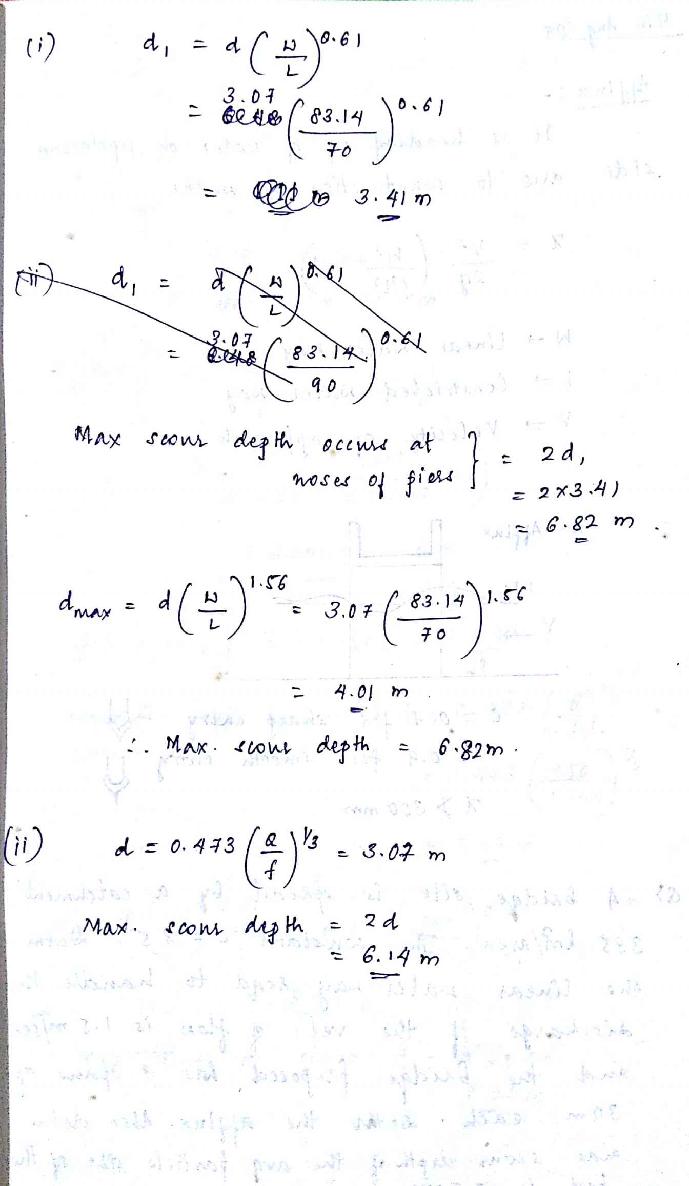 (i) d₁ = d (W/L)^0.61
= 3.07 (83.14/70)^0.61
= 3.41 m
(ii) d₁ = d (W/L)^0.61
= 3.07 (83.14/90)^0.61
Max scour depth occurs at
noses of piers } = 2d₁
= 2×3.41
= 6.82 m.
dmax = d (W/L)^1.56 = 3.07 (83.14/70)^1.56
= 4.01 m.
∴ Max. scour depth = 6.82m.
(ii) d = 0.473 (Q/f)^1/3 = 3.07 m
Max. scour depth = 2d
= 6.14 m